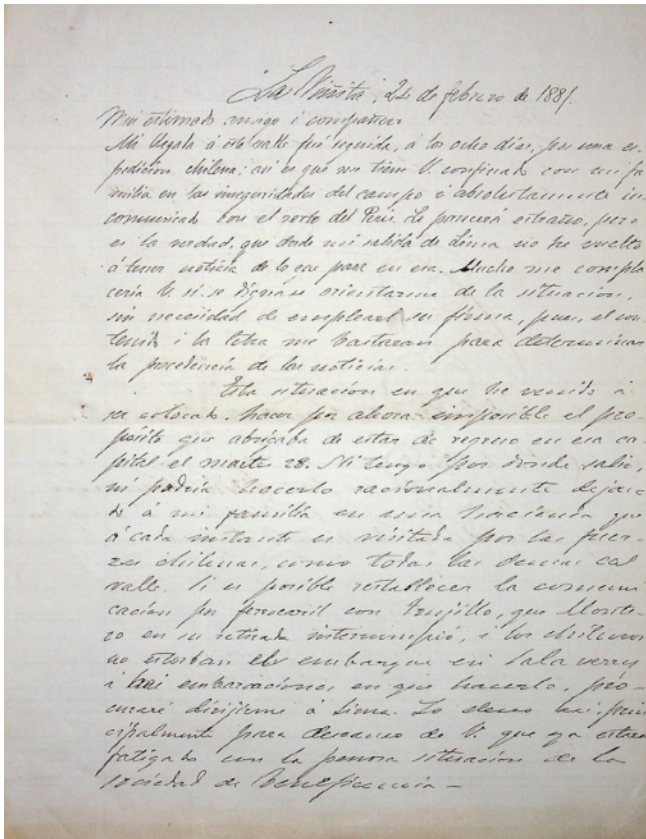 La Viñita, 24 de febrero de 1881.
Mui estimado amigo i compañero
Mi llegada á este valle fué seguida, á los ocho dias, por una es-
pedicion chilena; asi es que me tiene V. confinado con mi fa
milia en las inseguridades del campo i absolutamente in-
comunicado con el resto del Perú. Le parecerá estraño, pero
es la verdad, que desde mi salida de Lima no he vuelto
á tener noticia de lo que pasa en esa. Mucho me compla
ceria V. si se dignase orientarme de la situacion,
sin necesidad de emplear su firma, pues, el con-
tenido i la letra me bastaran para determinar
la procedencia de las noticias.
Esta situacion en que he venido á
ser colocado, hacen por ahora imposible el pro-
pósito que abrigaba de estar de regreso en esa ca-
pital el martes 28. Ni tengo por donde salir,
ni podria hacerlo racionalmente dejan-
do á mi familia en una hacienda que
á cada instante es visitada por las fuer-
zas chilenas, como todas las demas del
valle. Si es posible restablecer la comuni
cacion por ferrocarril con Trujillo, que Monte-
ro en su retirada interrumpió, i los chilenos
no estorban el embarque en Salaverry
i hai embarcaciones en que hacerlo, pro-
curaré dirijirme á Lima. Lo deseo asi, prin
cipalmente para descanso de V. que ya estará
fatigado con la penosa situacion de la
sociedad de Beneficencia —